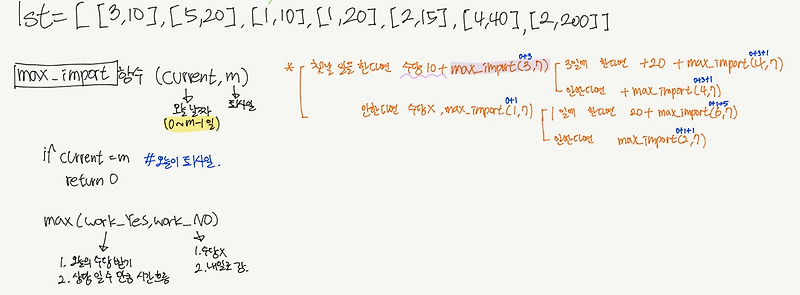 lst=[ [3,10],[5,20],[1,10],[1,20],[2,15],[4,40],[2,200]]
max_import 함수 (current, m)
오늘 날짜 퇴사일
(0~m-1일)
if current = m #오늘이 퇴사일.
return 0
max(work_Yes,work_NO)
1. 오늘의 수당 받기
2. 상담 일수 만큼 시간흐름
1. 수당X
2. 내일로 감.
0+3
* 첫날 일을 한다면 수당 10 + max_import(3,7)
0+3+1
3일째 한다면 +20 + max_import(4,7)
0+3+1
안한다면 + max_import(4,7)
0+1
안한다면 수당X, max_import(1,7)
0+1+5
1일째 한다면 20+max_import(6,7)
0+1+1
안한다면 max_import(2,7)